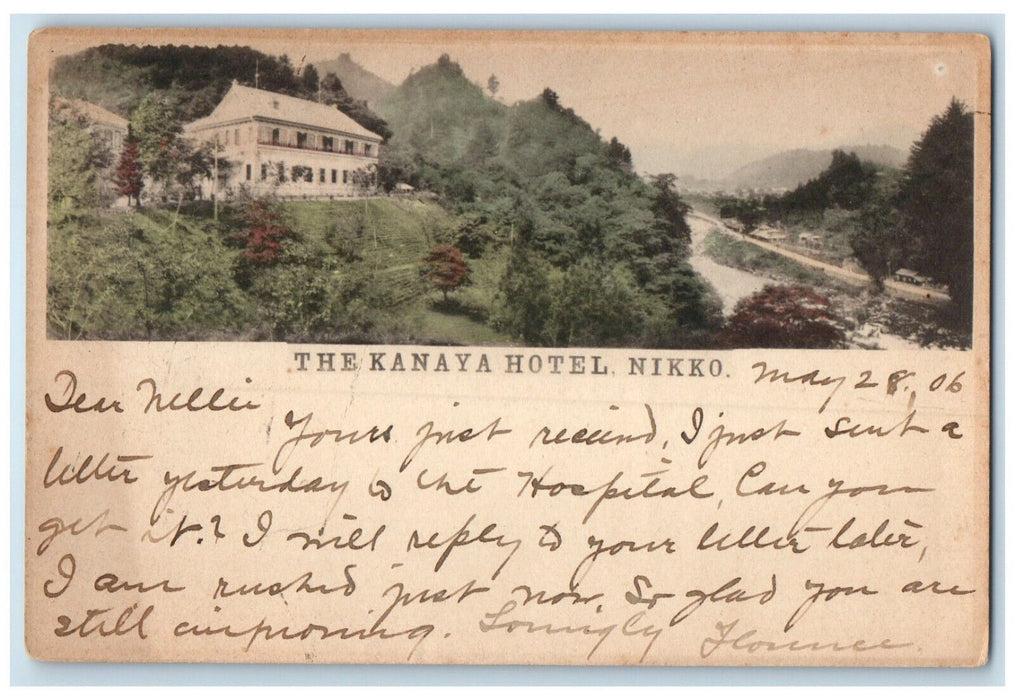 THE KANAYA HOTEL, NIKKO.
May 28, 06
Dear Nellie
Yours just received, I just sent a
letter yesterday to the Hospital, Can you
get it? I will reply to your letter later,
I am rushed just now. So glad you are
still improving. Lovingly Florence.